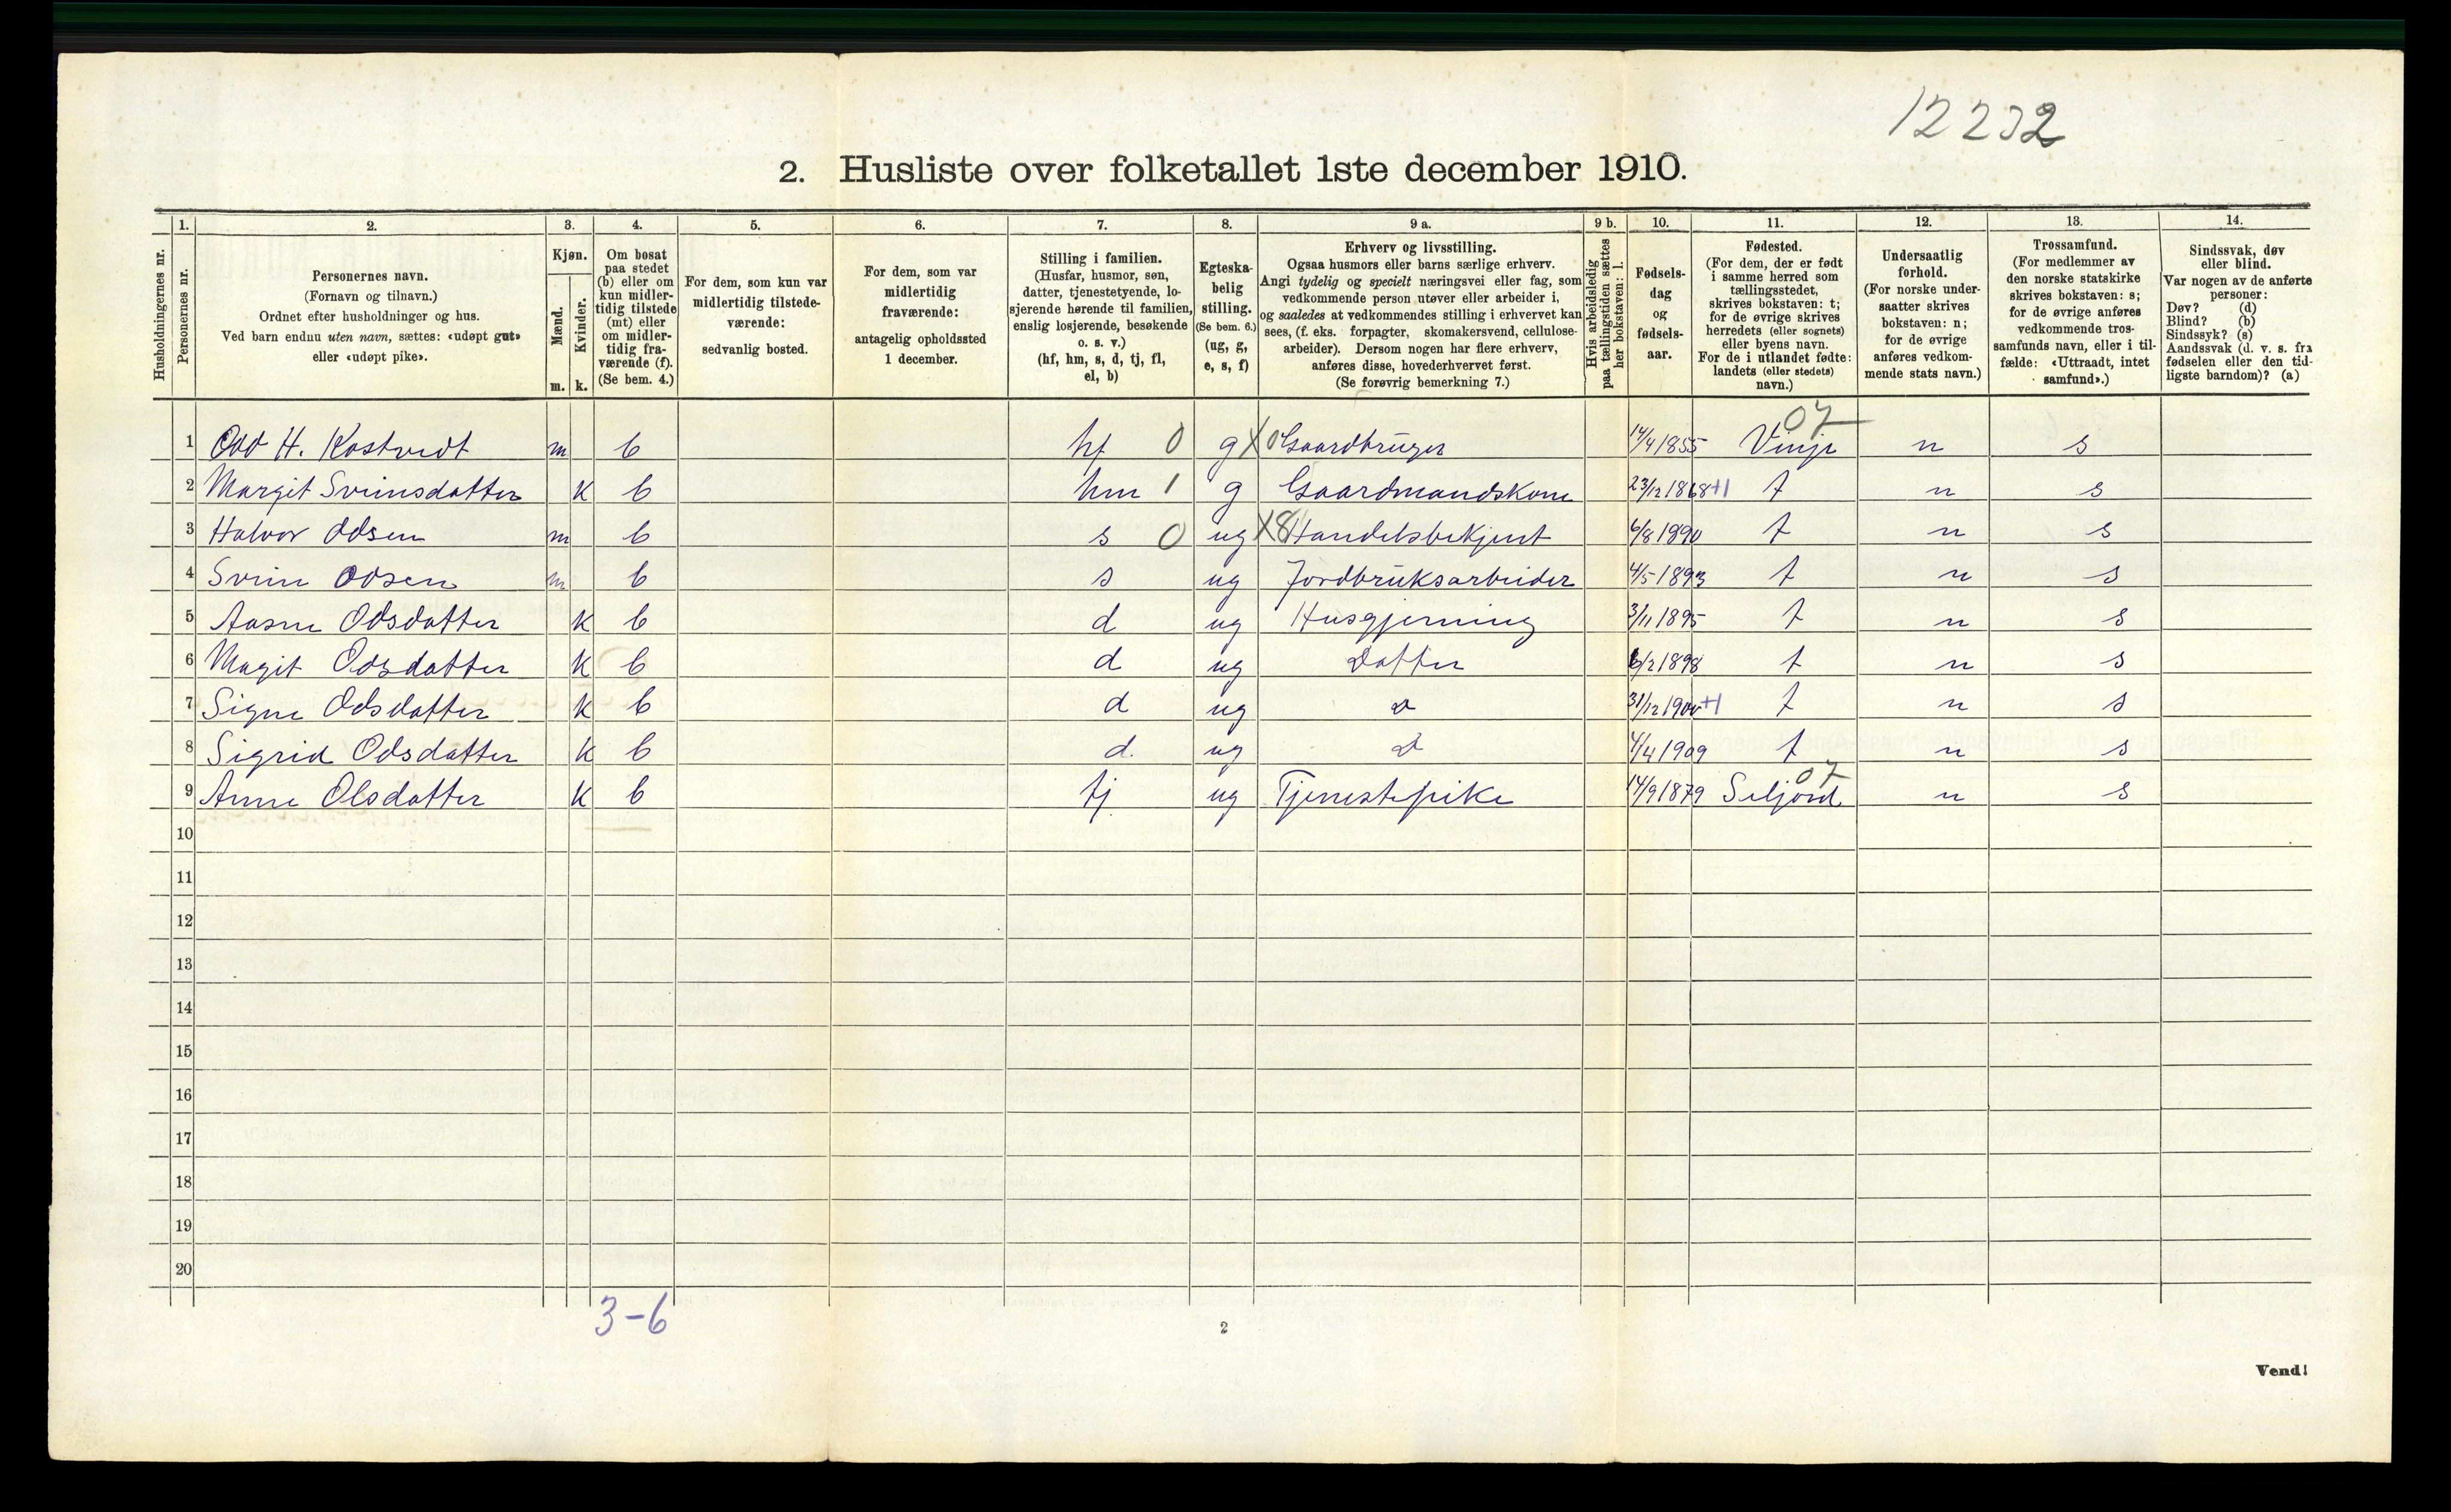 12232
2. Husliste over folketallet 1ste december 1910.
Husholdningernes nr.
1.
Personernes nr.
2.
Personernes navn.
(Fornavn og tilnavn.)
Ordnet efter husholdninger og hus.
Ved barn endnu uten navn, sættes: «udøpt gut»
eller «udøpt pike».
3.
Kjøn.
Mænd.
Kvinder.
m. k.
4.
Om bosat
paa stedet
(b) eller om
kun midler-
tidig tilstede
(mt) eller
om midler-
tidig fra-
værende (f).
(Se bem. 4.)
5.
For dem, som kun var
midlertidig tilstede-
værende:
sedvanlig bosted.
6.
For dem, som var
midlertidig
fraværende:
antagelig opholdssted
1 december.
7.
Stilling i familien.
(Husfar, husmor, søn,
datter, tjenestetyende, lo-
sjerende hørende til familien,
enslig losjerende, besøkende
o. s. v.)
(hf, hm, s, d, tj, fl,
el, b)
8.
Egteska-
belig
stilling.
(Se bem. 6.)
(ug, g,
e, s, f)
9 a.
Erhverv og livsstilling.
Ogsaa husmors eller barns særlige erhverv.
Angi tydelig og specielt næringsvei eller fag, som
vedkommende person utøver eller arbeider i,
og saaledes at vedkommendes stilling i erhvervet kan
sees, (f. eks. forpagter, skomakersvend, cellulose-
arbeider). Dersom nogen har flere erhverv,
anføres disse, hovederhvervet først.
(Se forøvrig bemerkning 7.)
9 b.
Hvis arbeidsledig
paa tællingstiden sættes
her bokstaven: l.
10.
Fødsels-
dag
og
fødsels-
aar.
11.
Fødested.
(For dem, der er født
i samme herred som
tællingsstedet,
skrives bokstaven: t;
for de øvrige skrives
herredets (eller sognets)
eller byens navn.
For de i utlandet fødte:
landets (eller stedets)
navn.)
12.
Undersaatlig
forhold.
(For norske under-
saatter skrives
bokstaven: n;
for de øvrige
anføres vedkom-
mende stats navn.)
13.
Trossamfund.
(For medlemmer av
den norske statskirke
skrives bokstaven: s;
for de øvrige anføres
vedkommende tros-
samfunds navn, eller i til-
fælde: «Uttraadt, intet
samfund».)
14.
Sindssvak, døv
eller blind.
Var nogen av de anførte
personer:
Døv? (d)
Blind? (b)
Sindssyk? (s)
Aandssvak (d. v. s. fra
fødselen eller den tid-
ligste barndom)? (a)
07
1 Odd H. Kostvedt m b hf 0 g X0 Gaardbruger 14/4 1855 Vinje n s
2 Margit Sveinsdatter k b hm 1 g Gaardmandskone 23/12 1868 +1 t n s
3 Halvor Odsen m b s 0 ug X8 Handelsbetjent 6/8 1890 t n s
4 Svein Odsen m b s ug Jordbruksarbeider 4/5 1893 t n s
5 Aasne Odsdatter k b d ug Husgjerning 3/11 1895 t n s
6 Magit Odsdatter k b d ug Datter 6/2 1898 t n s
7 Signe Odsdatter k b d ug D 31/12 1900 +1 t n s
8 Sigrid Odsdatter k b d. ug D 4/4 1909 t n s
07
9 Anne Olsdatter k b tj ug Tjenestepike 14/9 1879 Seljord n s
10
11
12
13
14
15
16
17
18
19
20
3-6
2
Vend!